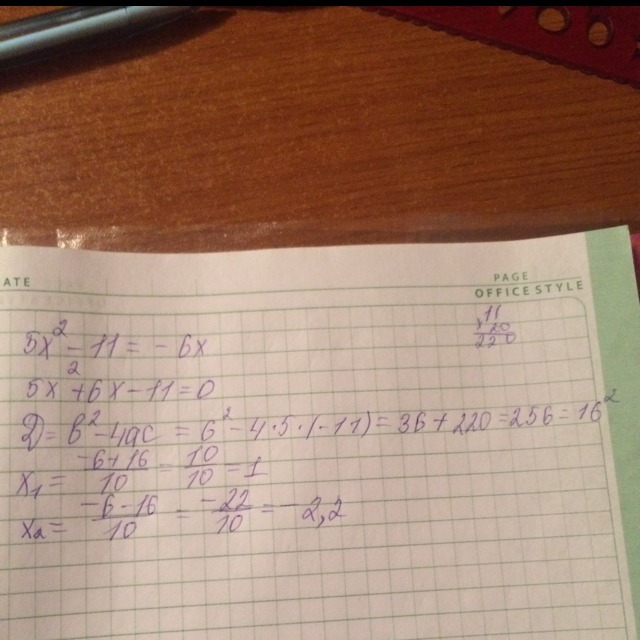 ATE
PAGE
OFFICE STYLE
11
×20
220
5x² - 11 = - 6x
5x² + 6x - 11 = 0
D = b² - 4ac = 6² - 4·5·(-11) = 36 + 220 = 256 = 16²
x₁ = (-6+16)/10 = 10/10 = 1
x₂ = (-6-16)/10 = -22/10 = -2,2